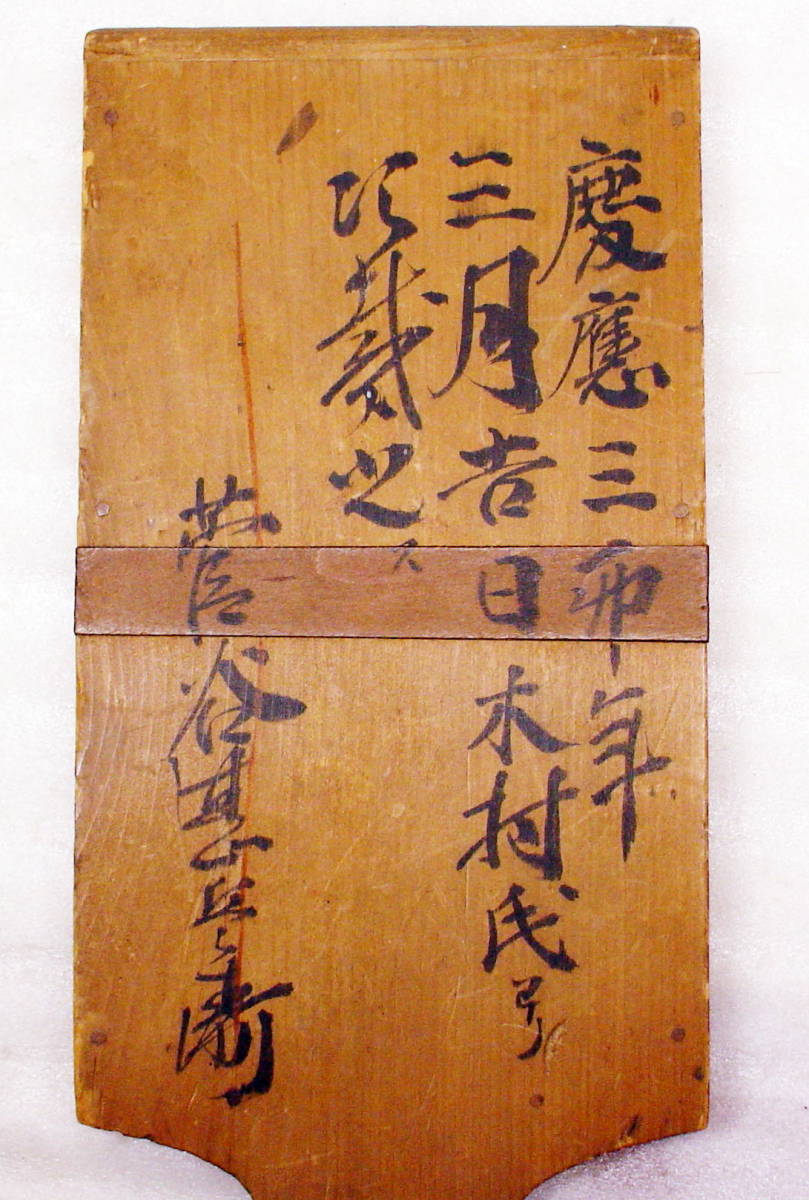 慶應三卯年
三月吉日木村氏ヨリ
之ス
菅谷兵衛